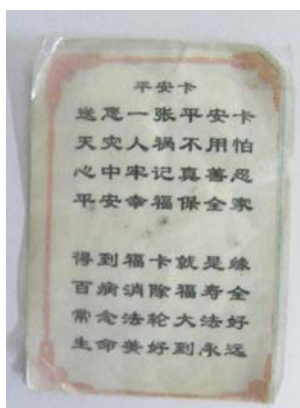 平安卡
送您一张平安卡
天灾人祸不用怕
心中牢记真善忍
平安幸福保全家
得到福卡就是缘
百病消除福寿全
常念法轮大法好
生命美好到永远